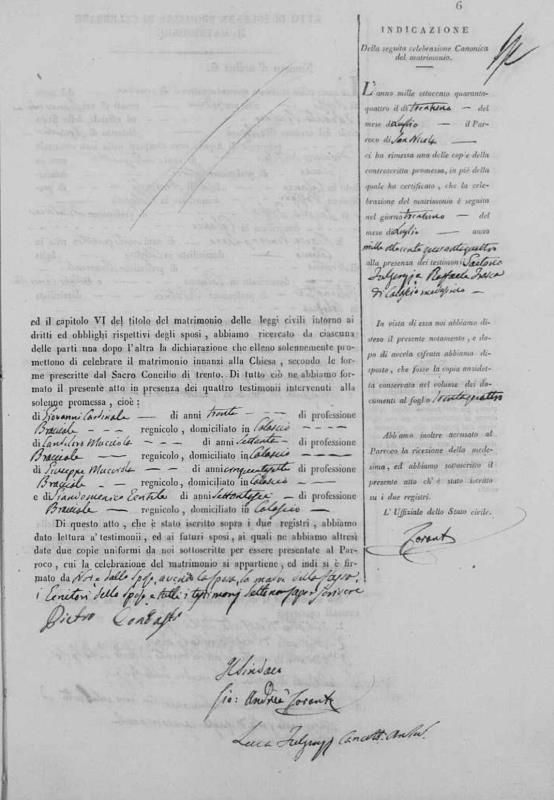 6
INDICAZIONE
Della seguita celebrazione Canonica
del matrimonio.
L'anno mille ottocento quaranta-
quattro il dì trentuno — del
mese di Luglio — il Par-
roco di San Nicola —
ci ha rimessa una delle copie della
controscritta promessa, in piè della
quale ha certificato, che la cele-
brazione del matrimonio è seguita
nel giorno trentuno — del
mese di Luglio — anno
mille ottocento quarantaquattro
alla presenza dei testimoni
Fulgenzj Raffaele
di Calascio
In vista di essa noi abbiamo di-
steso il presente notamento, e do-
po di averla cifrata abbiamo di-
sposto, che fosse la copia anzidet-
ta conservata nel volume dei do-
cumenti al foglio trentaquattro
Abbiamo inoltre accusato al
Parroco la ricezione della mede-
sima, ed abbiamo sottoscritto il
presente atto ch'è stato iscritto
su i due registri.
L'Uffiziale dello Stato civile.
ed il capitolo VI del titolo del matrimonio delle leggi civili intorno ai
dritti ed obblighi rispettivi degli sposi, abbiamo ricercato da ciascuna
delle parti una dopo l'altra la dichiarazione che elleno solennemente pro-
mettono di celebrare il matrimonio innanzi alla Chiesa, secondo le for-
me prescritte dal Sacro Concilio di Trento. Di tutto ciò ne abbiamo for-
mato il presente atto in presenza dei quattro testimoni intervenuti alla
solenne promessa, cioè:
di Giovanni Cardinale — di anni trenta — — — di professione
Bracciale — — — — regnicolo, domiciliato in Calascio — — —
di — — — di anni settanta — di professione
Bracciale — — — regnicolo, domiciliato in Calascio — — —
di Giuseppe — — — di anni cinquantasette di professione
Bracciale — — — regnicolo, domiciliato in Calascio
e di Giandomenico — di anni di professione
Bracciale — regnicolo, domiciliato in Calascio —
Di questo atto, che è stato iscritto sopra i due registri, abbiamo
dato lettura a' testimonii, ed ai futuri sposi, ai quali ne abbiamo altresì
date due copie uniformi da noi sottoscritte per essere presentate al Par-
roco, cui la celebrazione del matrimonio si appartiene, ed indi si è fir-
mato da Noi e dallo sposo, avendo la sposa, la madre della sposa,
i Genitori dello sposo e tutti i testimonj detto non saper scrivere
Pietro
Il Sindaco
Gio: Andrea
Luca Fulgenzj Cancell.